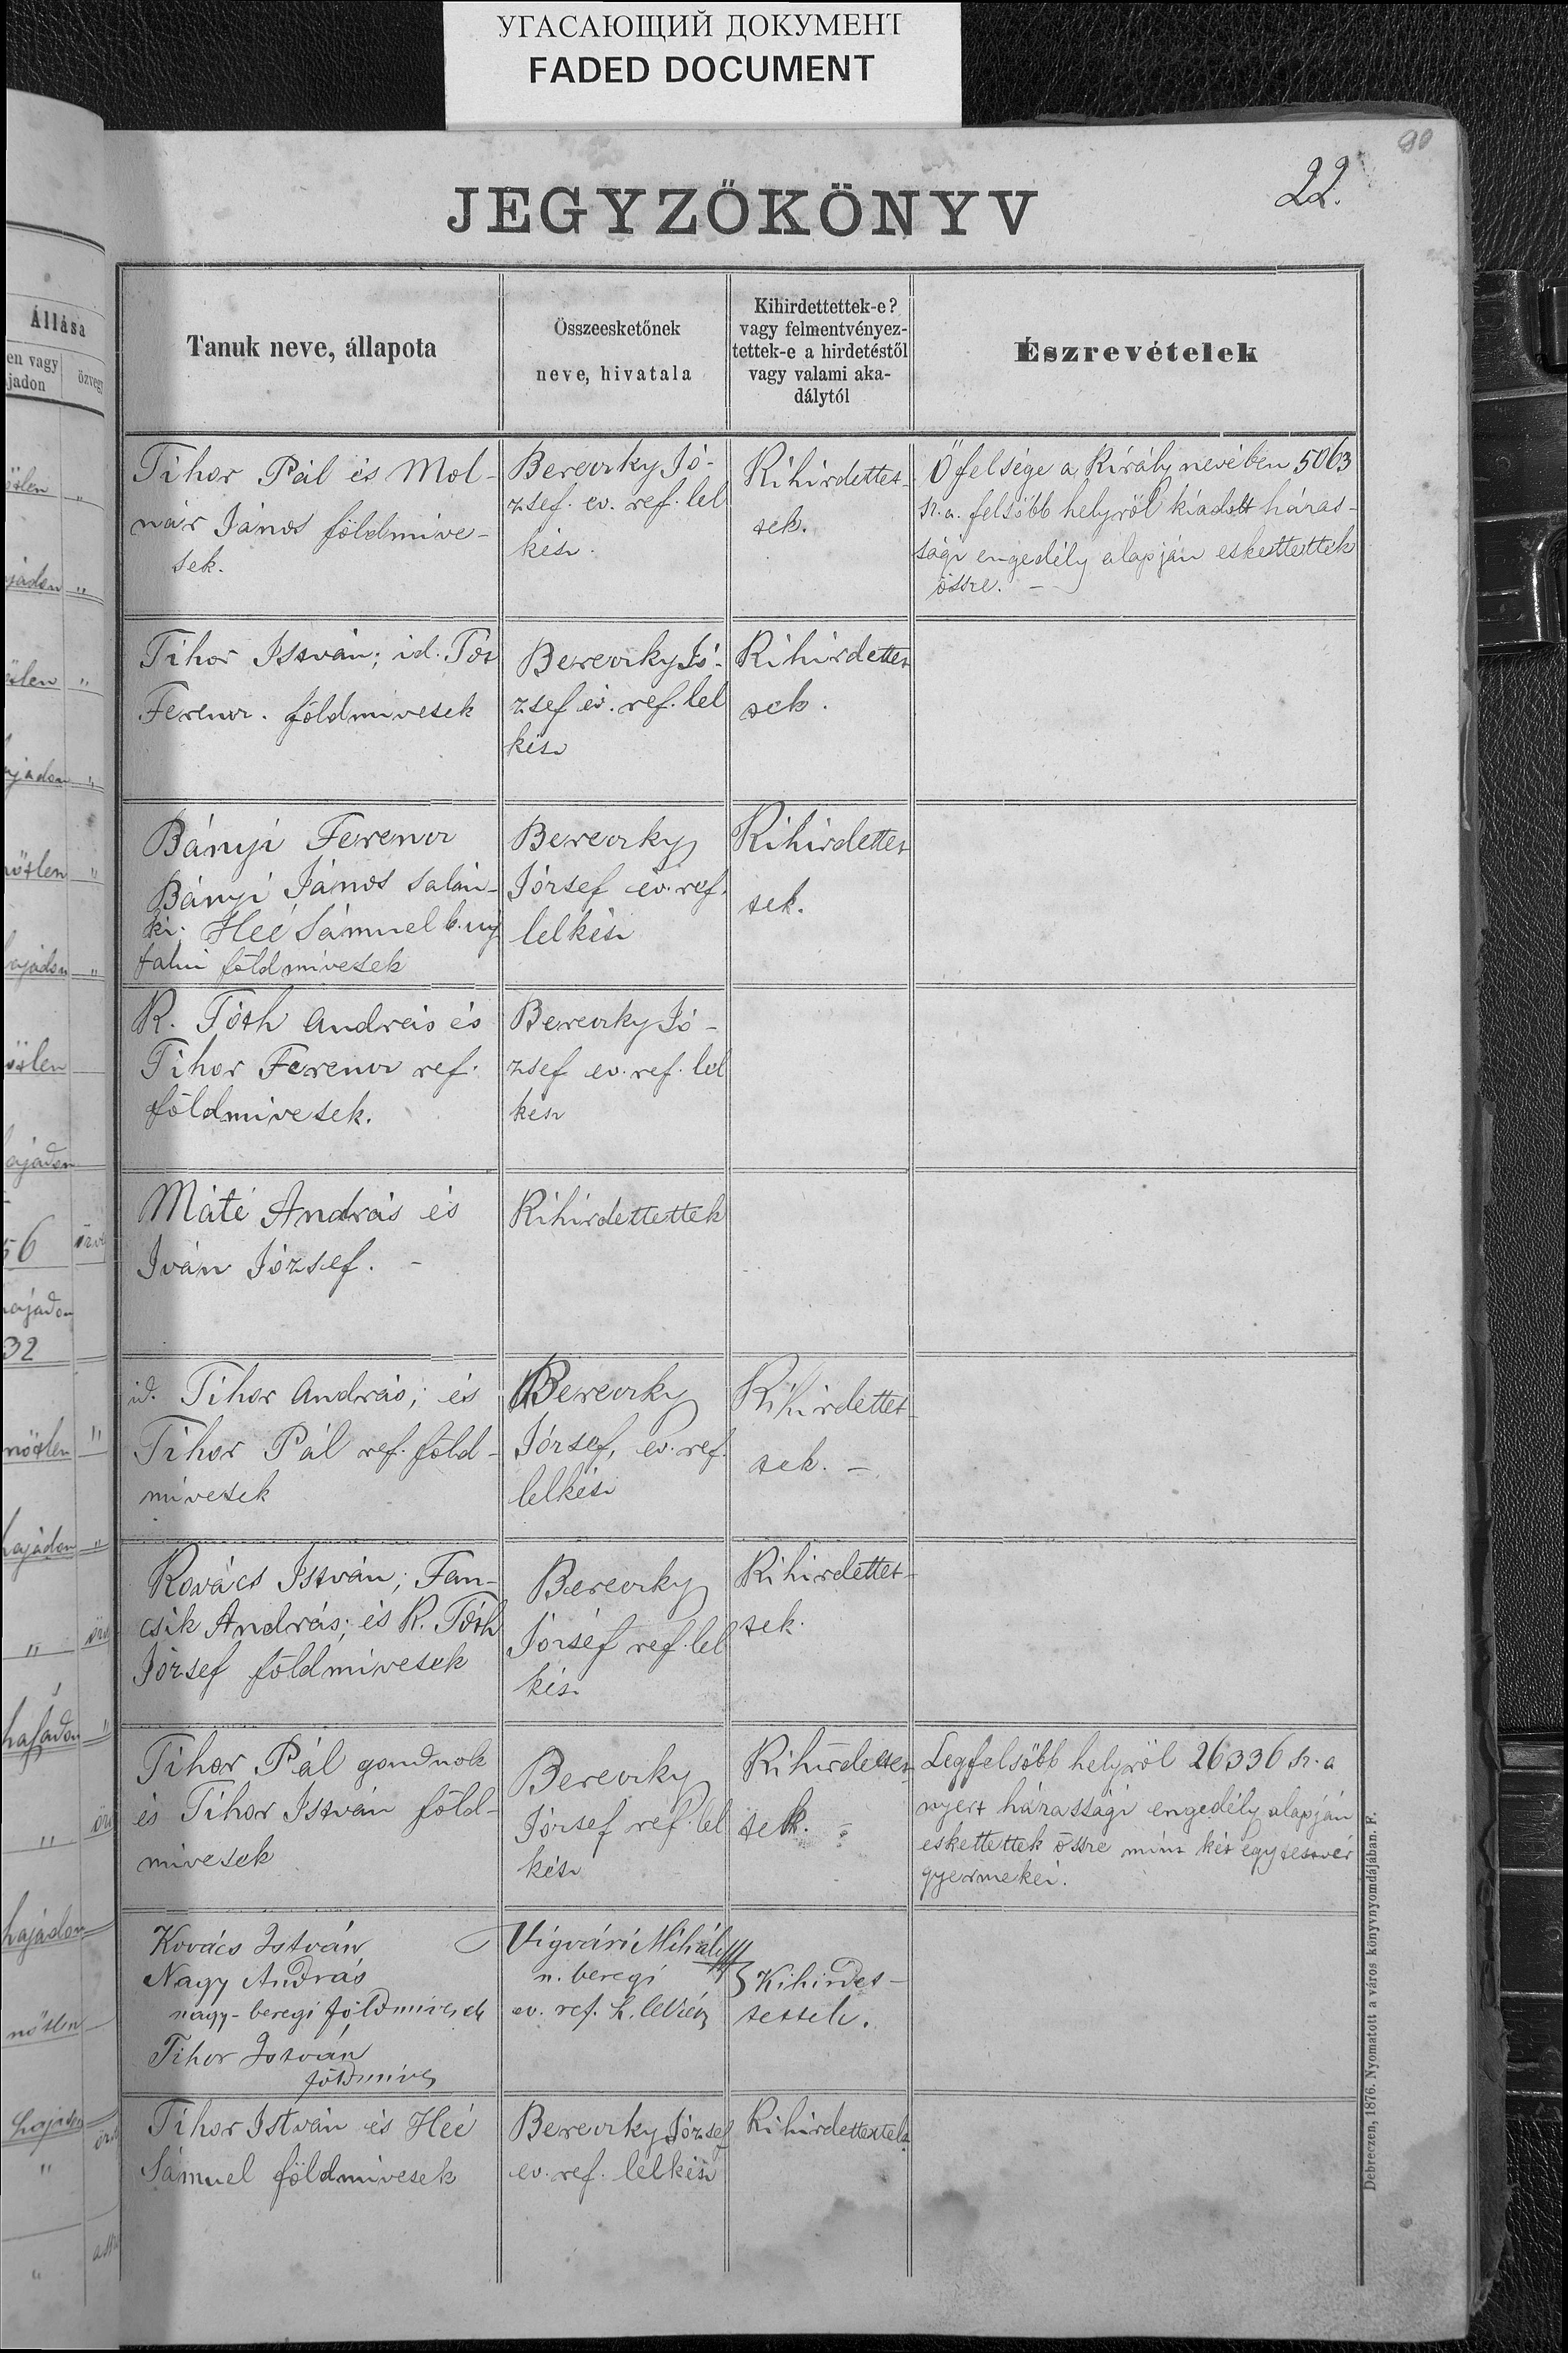 УГАСАЮЩИЙ ДОКУМЕНТ
FADED DOCUMENT
90
22.
JEGYZŐKÖNYV
Állása
en vagy
jadon
özvegy
Tanuk neve, állapota
Összeesketőnek
neve, hivatala
Kihirdettettek-e?
vagy felmentvényez-
tettek-e a hirdetéstől
vagy valami aka-
dálytól
Észrevételek
Tihor Pál és Mol-
nár János földmíve-
sek.
Bereczky Jó-
zsef. ev. ref. lel
kész.
Kihirdettet-
tek.
Ő felsége a Király nevében 5063
sz. a. felsőbb helyről kiadott házas-
sági engedély alapján eskettettek
össze. -
Tihor István; id. Tót
Ferencz. földmivesek
Bereczky Jó-
zsef ev. ref. lel
kész
Kihirdettet
tek.
Bányi Ferencz
Bányi János salán-
ki. Heé Sámuel b. uj
falui földmivesek
Bereczky
József ev. ref.
lelkész
Kihirdettet
tek.
R. Tóth András és
Tihor Ferencz ref.
földmivesek.
Bereczky Jó-
zsef ev. ref. lel
kész
Máté András és
Iván József. -
Kihirdettettek
id. Tihor András; és
Tihor Pál ref. föld-
mivesek
Bereczky
József, ev. ref.
lelkész
Kihirdettet-
tek. -
Kovács István; Fan-
csik András; és R. Tóth
József földmivesek
Bereczky
József ref. lel
kész
Kihirdettet-
tek.
Tihor Pál gondnok
és Tihor István föld-
mivesek
Bereczky
József ref. lel
kész
Kihirdettet-
tek.
Legfelsőbb helyről 26336 sz. a
nyert házassági engedély alapján
eskettettek össze mint két egytestvér
gyermekei.
Kovács István
Nagy András
nagy-beregi földmivesek
Tihor István
földmives
Vígvári Mihály
n. beregi
ev. ref. h. lelkész
Kihirdet-
tettek.
Tihor István és Heé
Sámuel földmivesek
Bereczky József
ev. ref. lelkész
Kihirdettettek
Debreczen, 1876. Nyomatott a város könyvnyomdájában. F.